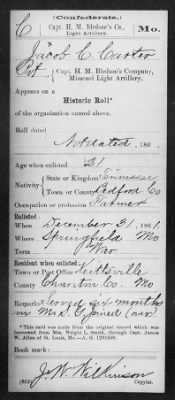 (Confederate.)
C Capt. H. M. Bledsoe's Co., Light Artillery. Mo.
Jacob C Carter
Pvt Capt. H. M. Bledsoe's Company, Missouri Light Artillery.
Appears on a
Historic Roll*
of the organization named above.
Roll dated
Not dated, 186 .
Age when enlisted 21
Nativity State or Kingdom Tennessee
Town or County Bedford Co
Occupation or profession Farmer
Enlisted:
When December 31, 1861.
Where Springfield Mo
Term War
Resident when enlisted:
Town or Post Office Keittsville
County Chariton Co. Mo
Remarks: Served six months
in Mo S. G. Joined (over)
*This card was made from the original record which was
borrowed from Mrs. Wright L. Smith, through Capt. James
W. Allen of St. Louis, Mo.—A. G.
Book mark:
J. W. Wilkinson
Copyist.